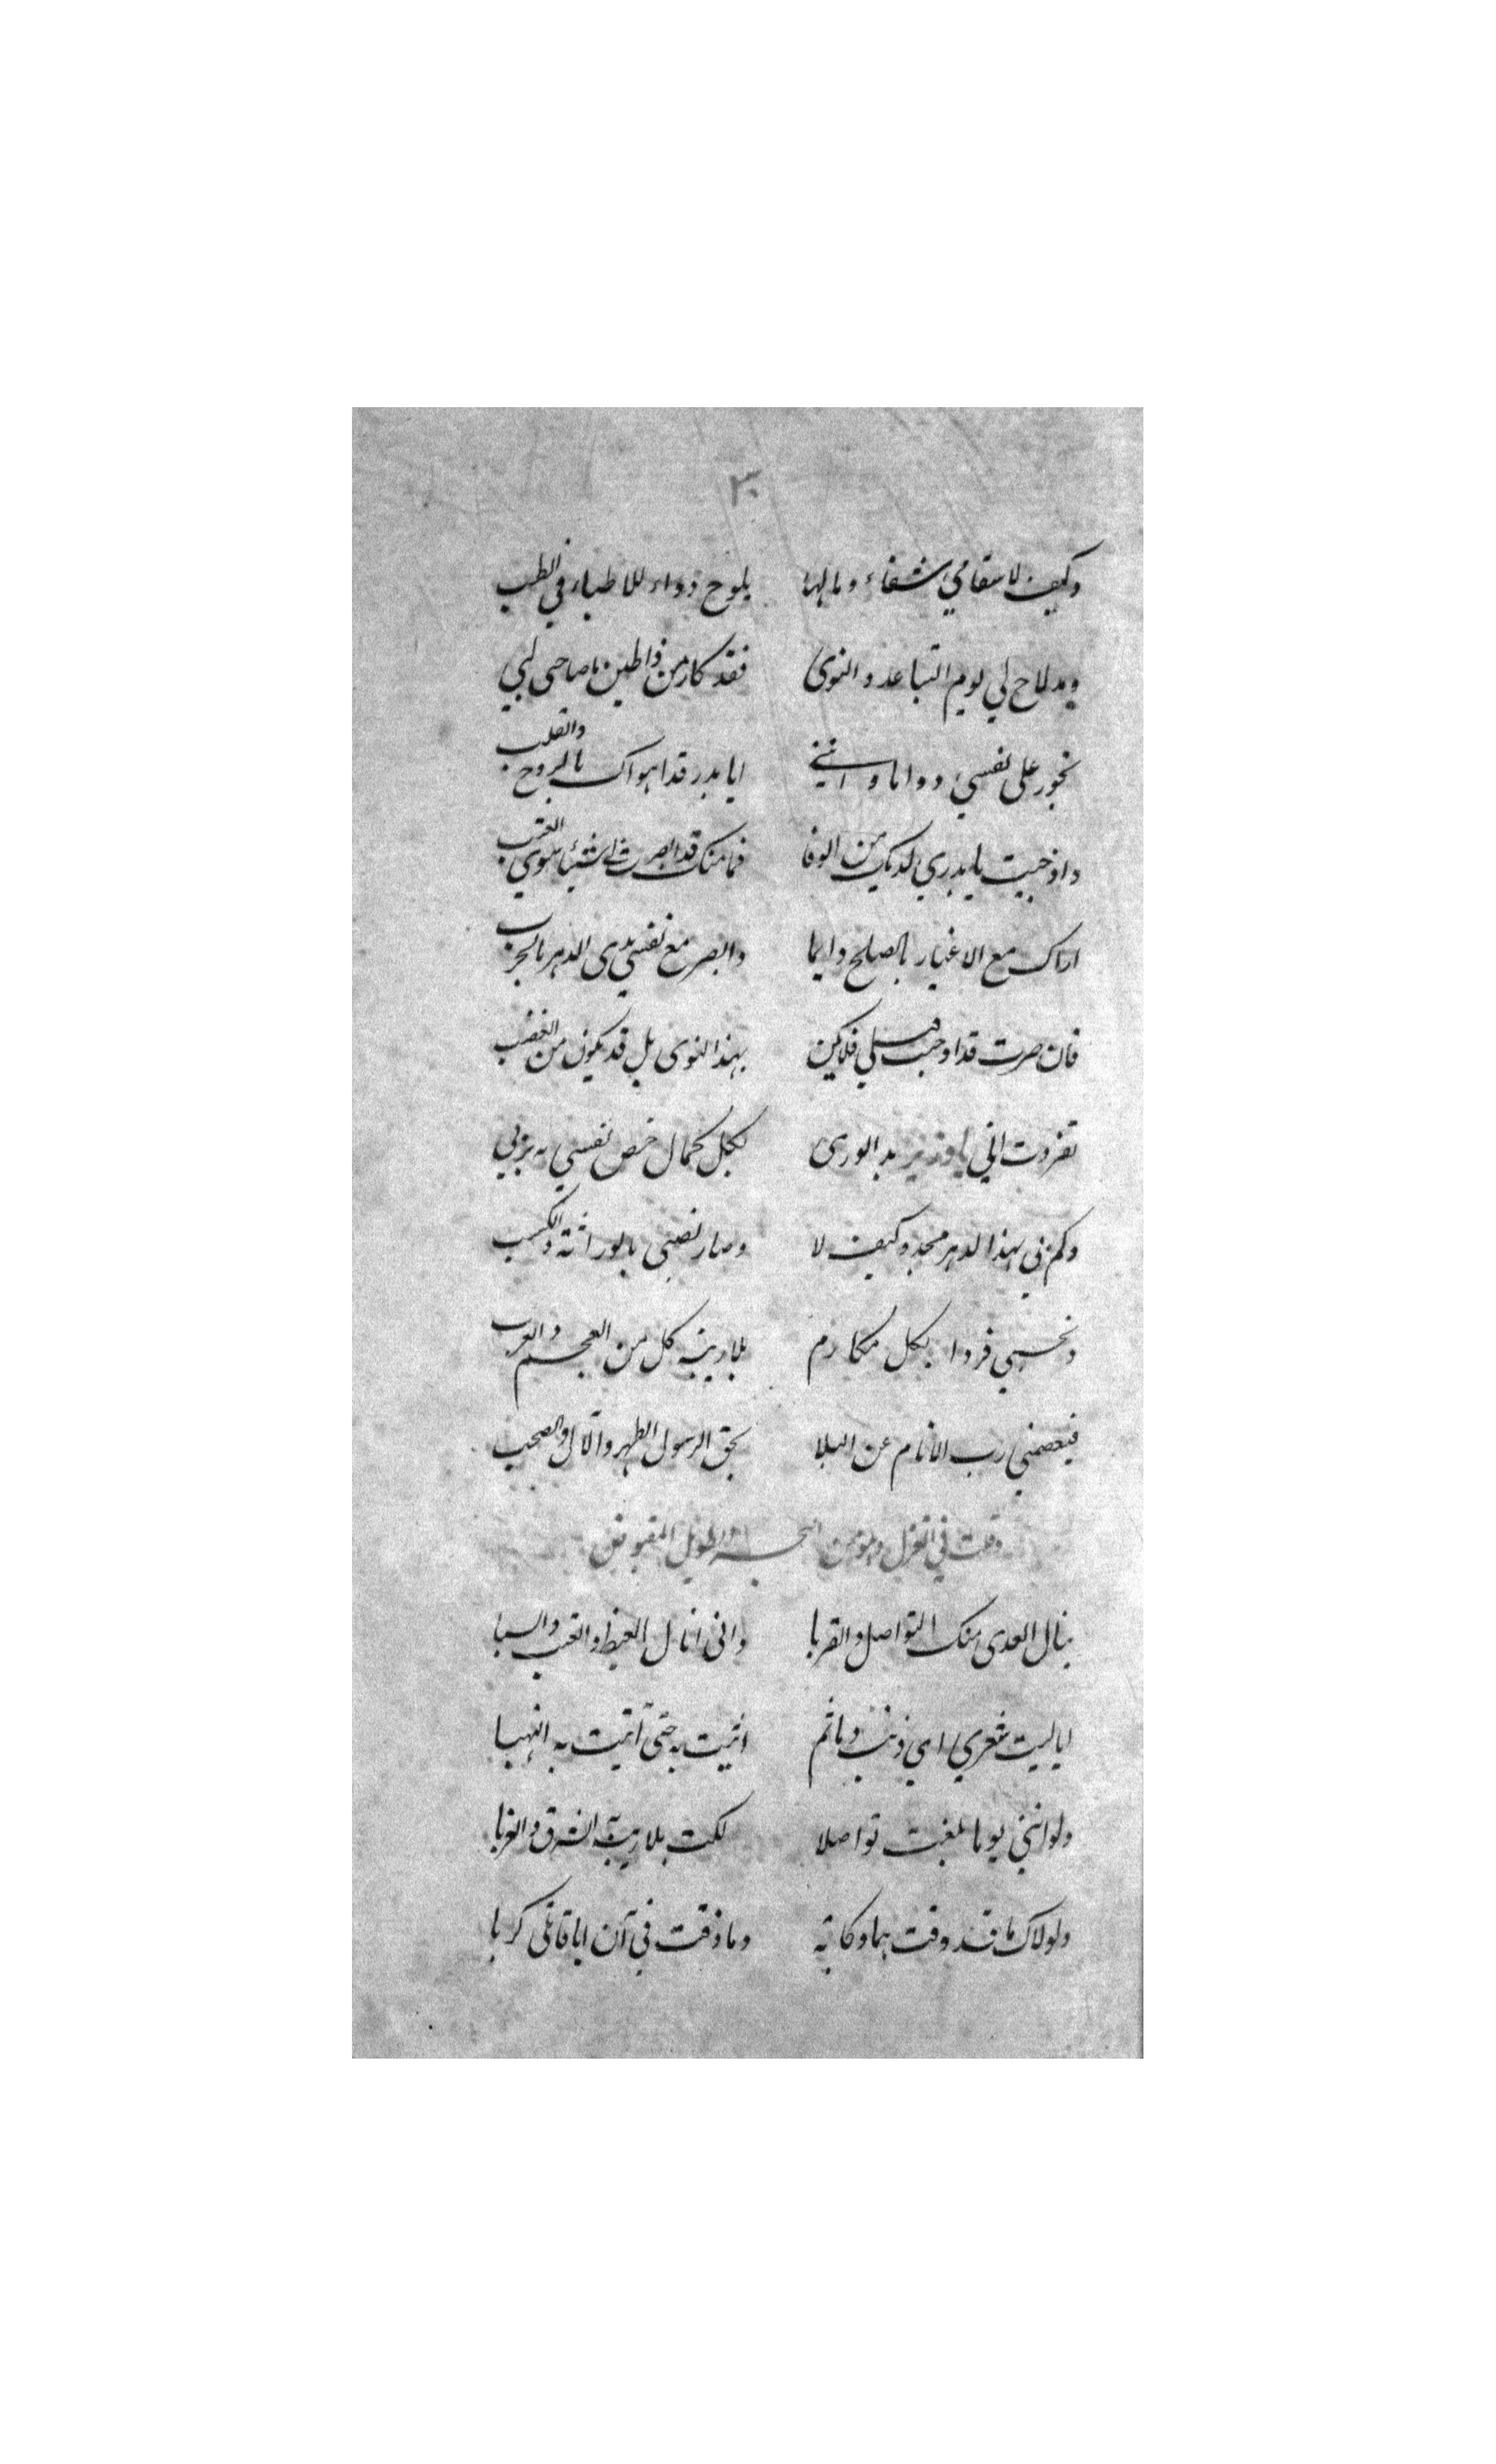 ٣٠
وكيف لاسقامي شفاء وما لها يلوح دواء للاطباء في الطب
ومذ لاح لي يوم التباعد والنوى فقد كاد من ذا طين يا صاحبي لبي
تجور على نفسي دواما وانني ايا بدر قد اهواك بالروح والقلب
واذ خبت يا بدري لديك من الوفا فما منك قد ابصرت شيئا سوي العتب
اراك مع الاغيار بالصلح دايما وابصر مع نفسي مدى الدهر بالحرب
فان صرت قد اوجبت قتلي فلا يكن بهذا النوى بل قد يكون من الغضب
تفردت اني يا بد الورى بكل كمال خص نفسي به ربي
وكم لي بهذا الدهر مجد وكيف لا وصار نصيبي بالوراثة والكسب
وتحسبني فردا بكل مكارم بلا ريبة كل من العجم والعرب
فيعصمني رب الانام عن البلا بحق الرسول الطهر والآل والصحب
وقلت في الغزل وهو من البحر الطويل المقبوض
ينال العدى منك التواصل والقربا واني انال الغيظ والعتب والسبا
ايا ليت شعري اي ذنب وما ثم اتيت به حتى اتيت به النهبا
ولو انني يوما بلغت تواصلا لكت بلا ريبة الشرق والغربا
ولولاك ما قد ذقت هما وكابة وما ذقت في آن ايا قاتلي كربا